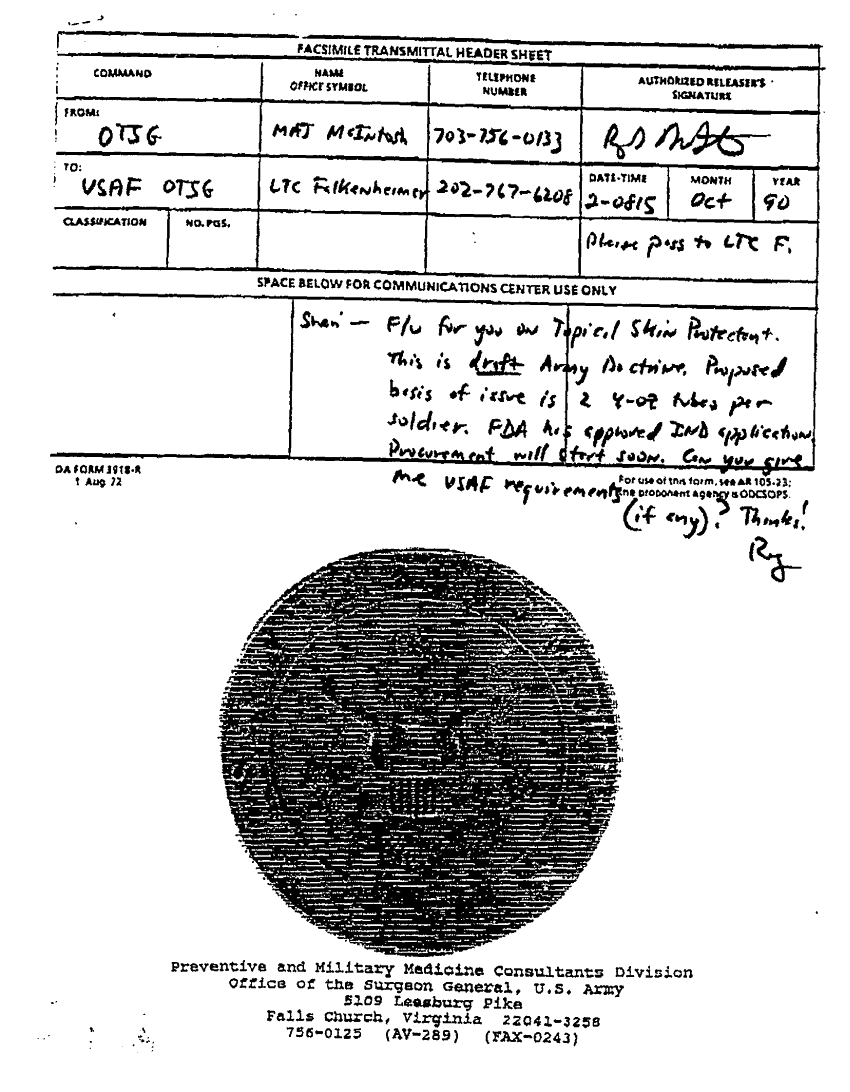 FACSIMILE TRANSMITTAL HEADER SHEET
COMMAND
NAME
OFFICE SYMBOL
TELEPHONE
NUMBER
AUTHORIZED RELEASER'S
SIGNATURE
FROM:
OTSG
MAJ McIntosh
703-756-0133
TO:
USAF OTSG
LTC Falkenheimer
202-767-6208
DATE-TIME
2-0815
MONTH
Oct
YEAR
90
CLASSIFICATION
NO. PGS.
Please pass to LTC F.
SPACE BELOW FOR COMMUNICATIONS CENTER USE ONLY
F/u for you on Topical Skin Protectant.
This is draft Army Doctrine. Proposed
basis of issue is 2 4-oz tubes per
soldier. FDA has approved IND application.
Procurement will start soon. Can you give
me USAF requirements
(if any)? Thanks!
DA FORM 3918-R
1 Aug 72
For use of this form, see AR 105-23;
the proponent agency is ODCSOPS.
Preventive and Military Medicine Consultants Division
Office of the Surgeon General, U.S. Army
5109 Leesburg Pike
Falls Church, Virginia 22041-3258
756-0125 (AV-289) (FAX-0243)